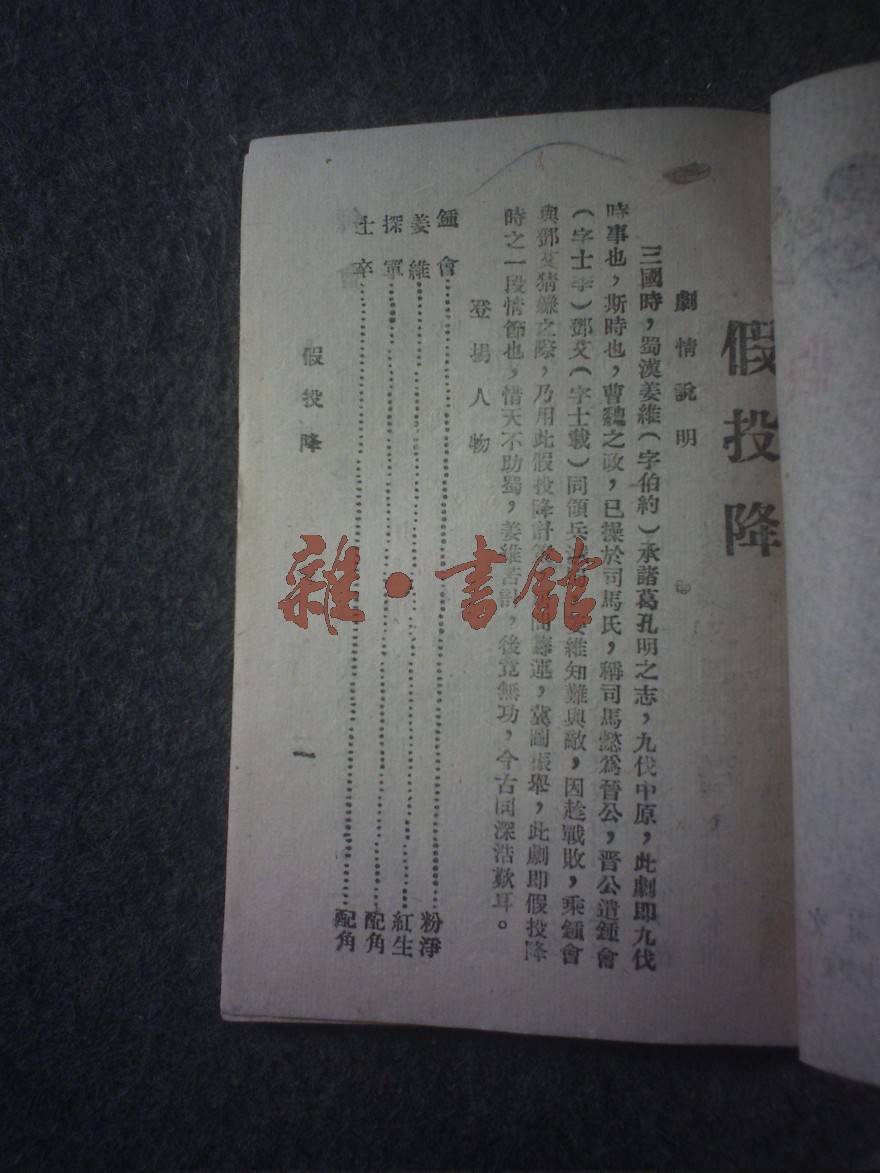 假投降
劇情說明
三國時，蜀漢姜維（字伯約）承諸葛孔明之志，九伐中原，此劇即九伐
時事也，斯時也，曹魏之政，已操於司馬氏，稱司馬懿爲晉公，晋公遣鍾會
（字士季）鄧艾（字士載）同領兵 姜維知難與敵，因趁戰敗，乘鍾會
與鄧艾猜嫌之際，乃用此假投降計 冀圖振舉，此劇即假投降
時之一段情節也，惜天不助蜀，姜維苦計，後竟無功，今古同深浩歎耳。
登場人物
鍾會⋯⋯⋯⋯粉淨
姜維⋯⋯⋯⋯紅生
探軍⋯⋯⋯⋯配角
士卒⋯⋯⋯⋯配角
假投降
一
雜·書館